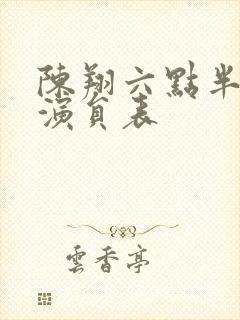 陳翔六點半
演員表
雲香亭